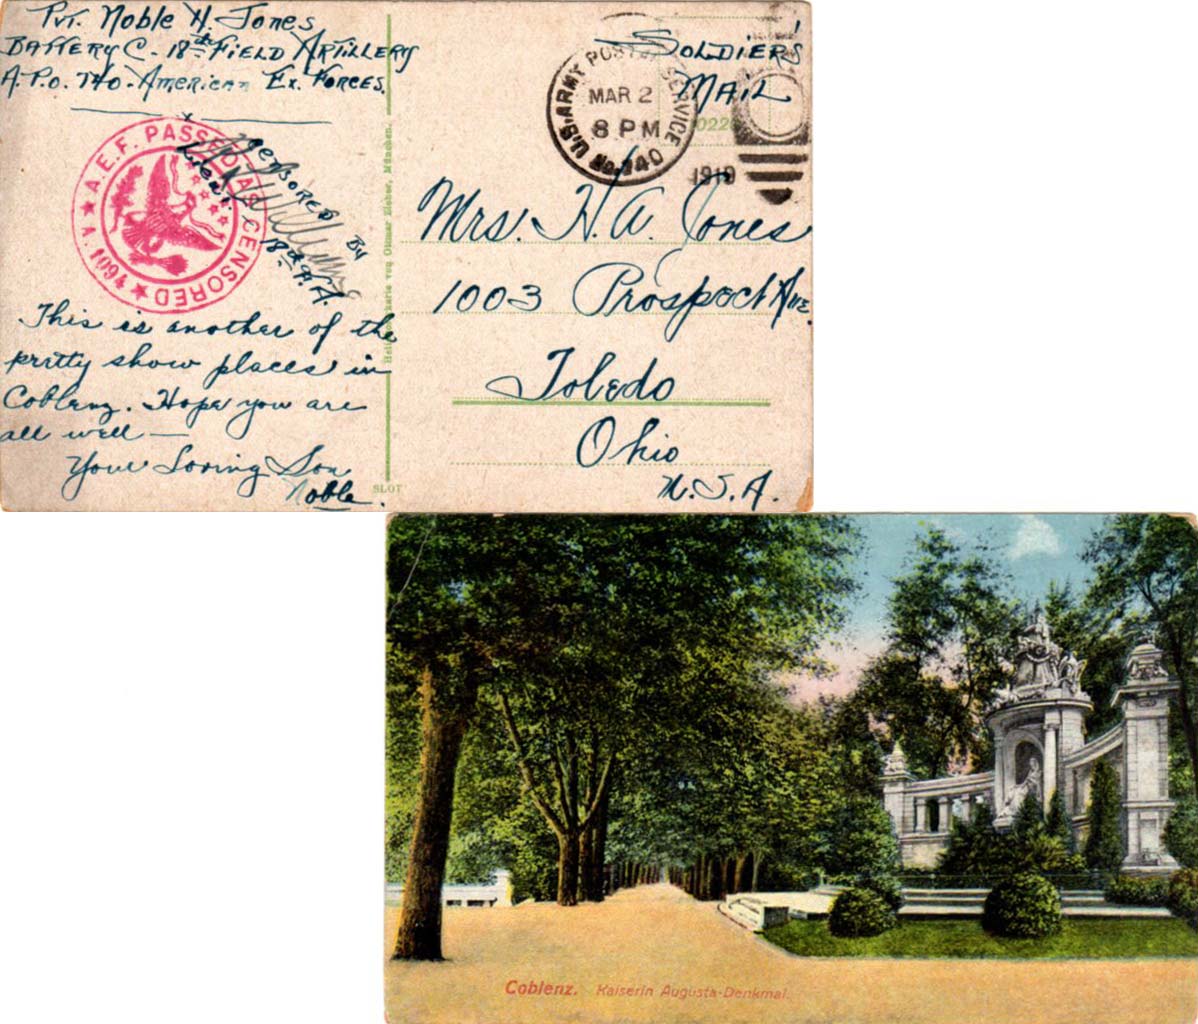 Pvt. Noble H. Jones
Battery C - 18th Field Artillery
A.P.O. 740 - American Ex. Forces.
Soldiers'
Mail
U.S. ARMY POSTAL SERVICE
MAR 2
8 PM
No. 740
1919
A.E.F. PASSED AS CENSORED
A. 1604
Censored By
Lieut.
18th F.A.
This is another of the
pretty show places in
Coblenz. Hope you are
all well —
Your Loving Son
Noble.
Mrs. H. A. Jones
1003 Prospect Ave.
Toledo
Ohio
U.S.A.
von Ottmar Zieher, München.
Coblenz. Kaiserin Augusta-Denkmal.